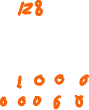 128
1000
00060